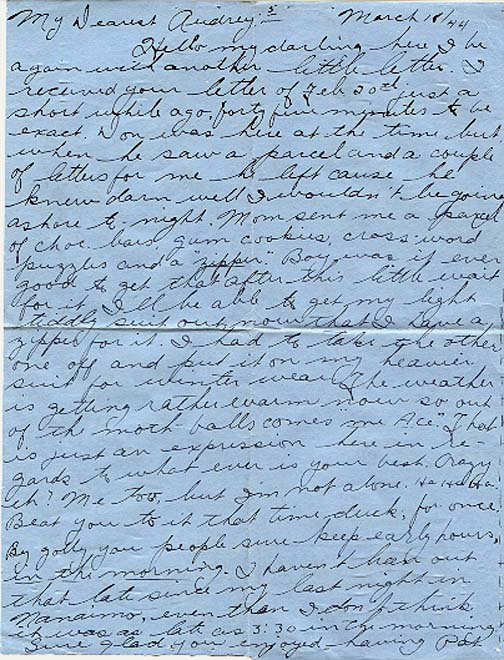 My Dearest Audrey:- March 18/44
Hello my darling here I be
again with another little letter. I
received your letter of Feb 20th just a
short while ago, forty five minutes to be
exact. Don was here at the time, but
when he saw a parcel and a couple
of letters for me he left cause he
knew darn well I wouldn't be going
ashore to night. Mom sent me a parcel
of choc bars gum cookies, cross word
puzzles and a "zipper". Boy was it ever
good to get that after this little wait
for it. I'll be able to get my light
tiddly suit out now that I have a
zipper for it. I had to take the other
one off and put it on my heavier
suit for winter wear. The weather
is getting rather warm now so out
of the moth balls comes me "Ace". That
is just an expression here in re-
gards to what ever is your best. Crazy
eh? Me too, but I'm not alone. Ha Ha Ha.
Beat you to it that time duck, for once.
By golly you people sure keep early hours,
in the morning. I haven't been out
that late since my last night in
Nanaimo, even than I don't think
it was as late as 3:30 in the morning.
Sure glad you enjoyed having Pat